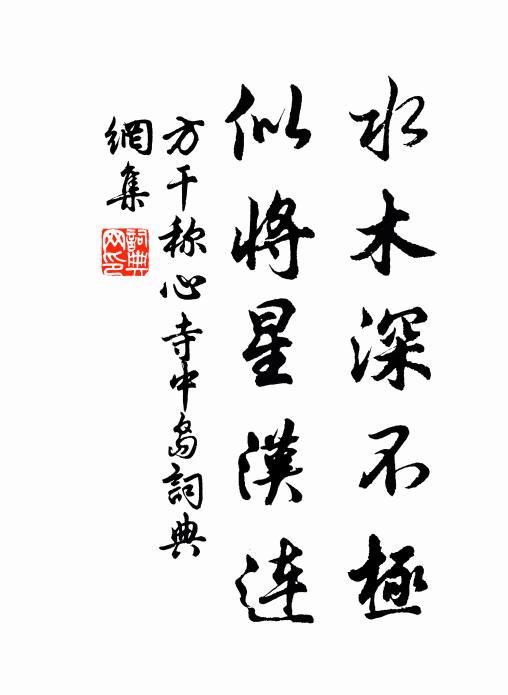 水木深不極
似將星漢連
方干称心寺中岛詞典
網集
詞典
网印